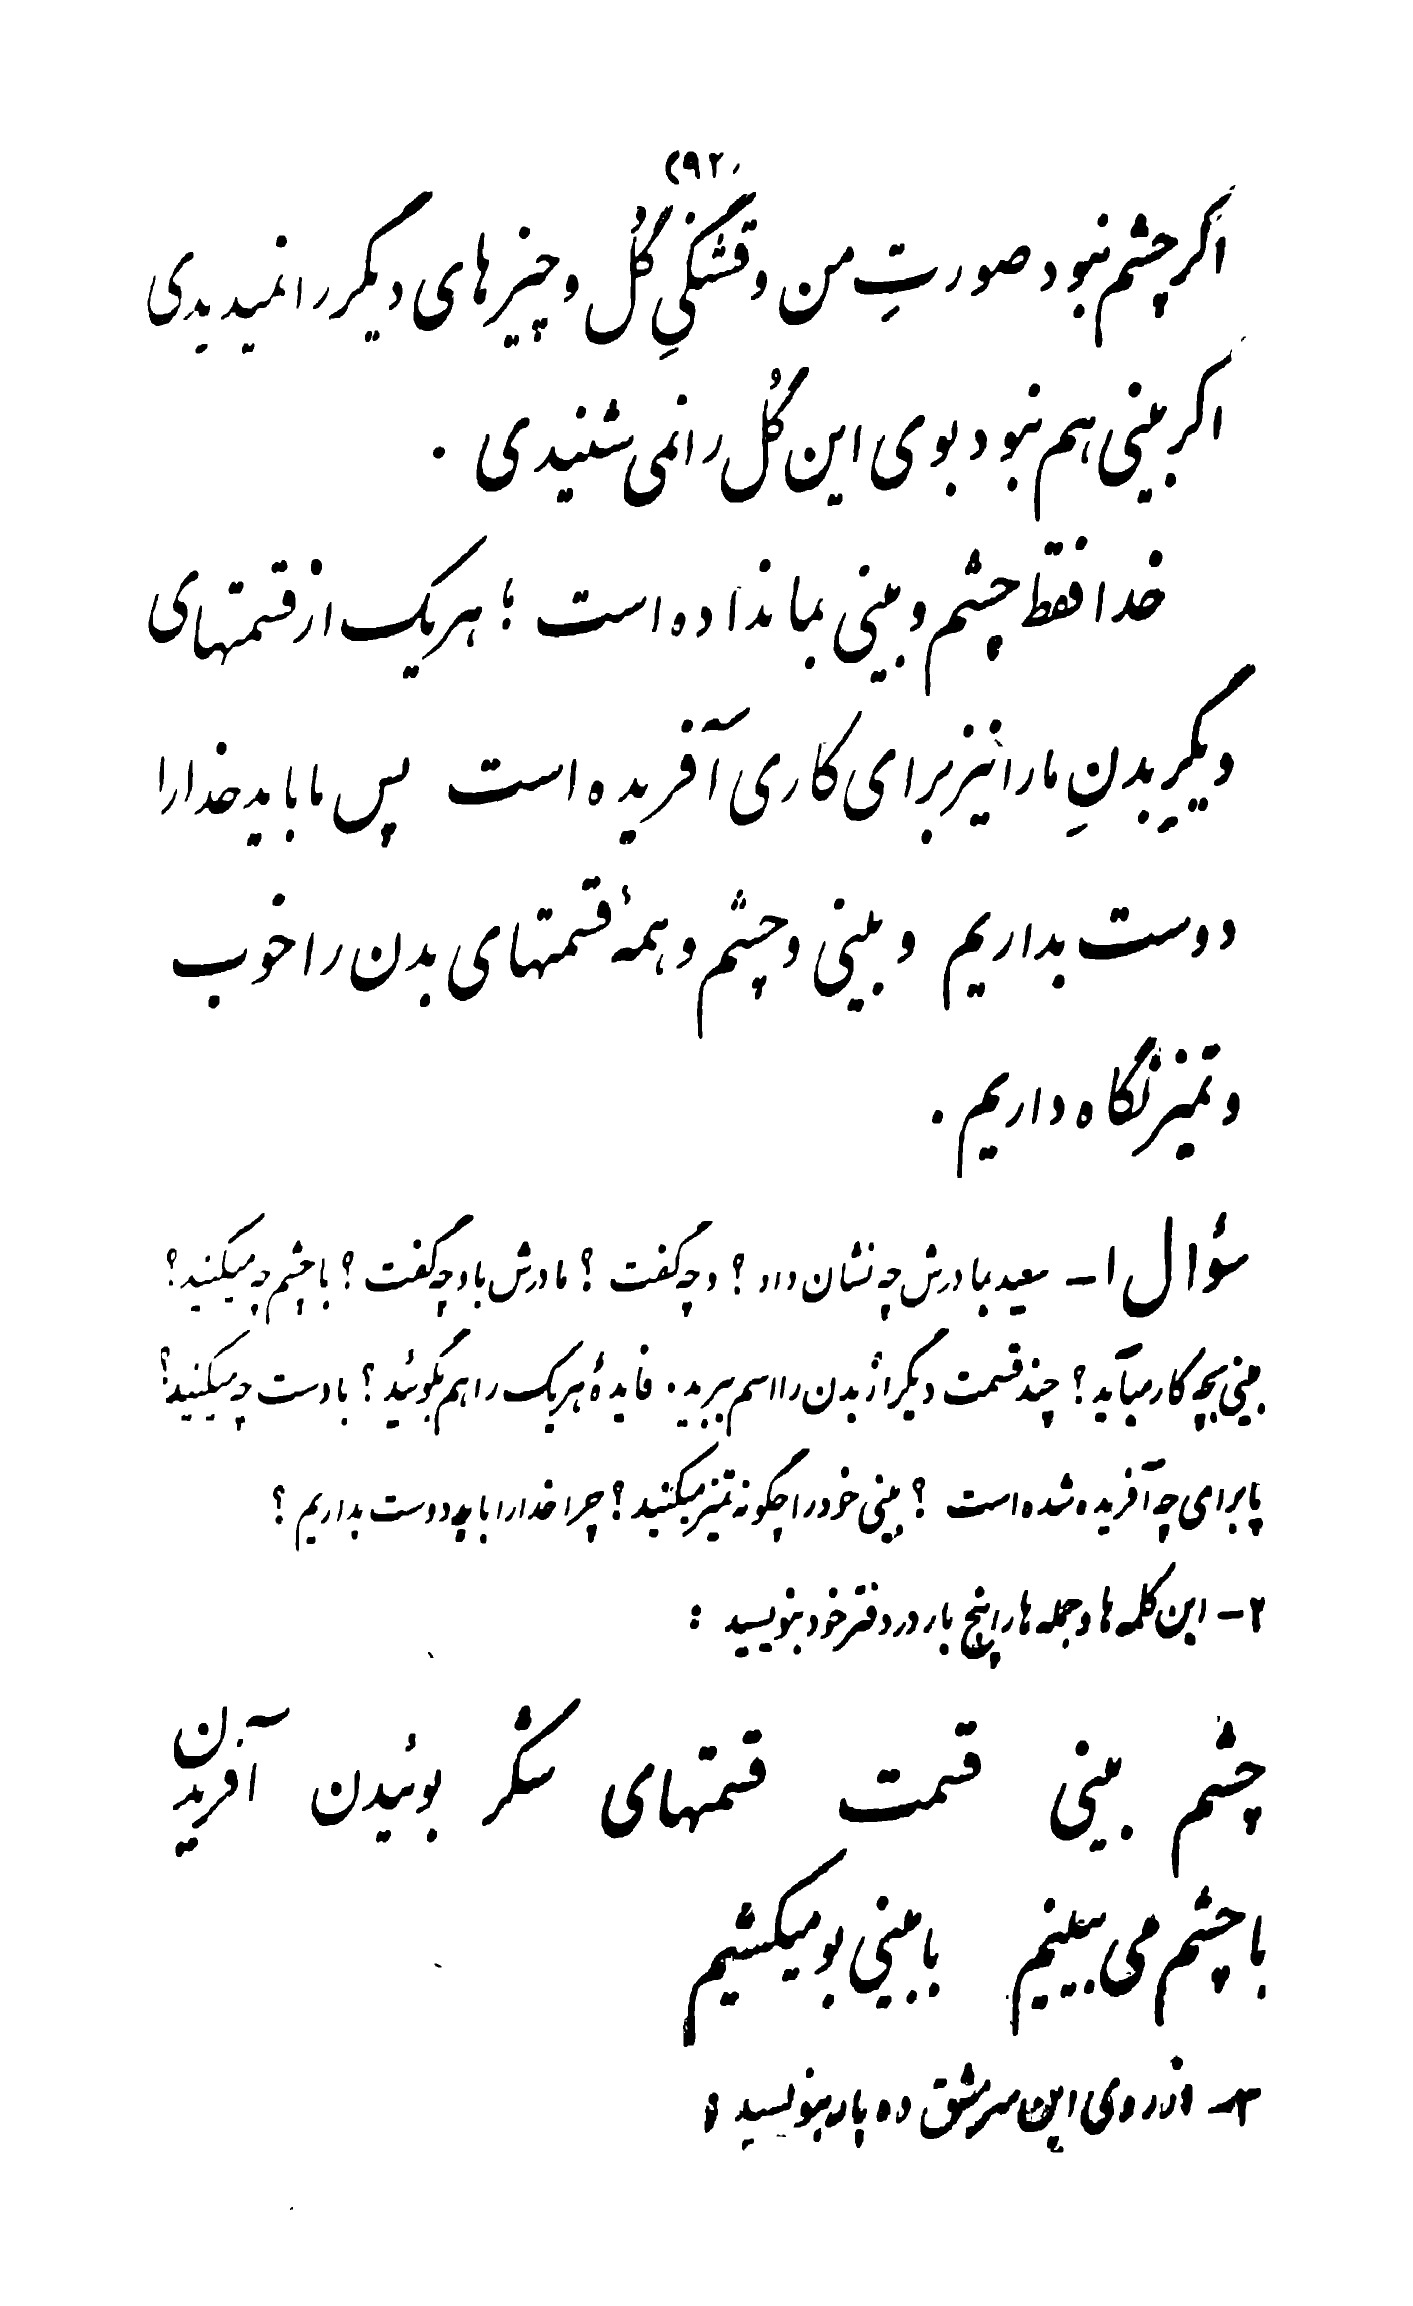 (۹۲)
اگر چشم نبود صورتِ من و قشنگیِ گُل و چیزهای دیگر را نمیدیدی
اگر بینی هم نبود بوی این گُل را نمی شنیدی .
خدا فقط چشم و بینی بما نداده است ؛ هر یک از قسمتهای
دیگرِ بدنِ ما را نیز برای کاری آفریده است پس ما باید خدا را
دوست بداریم و بینی و چشم و همهٔ قسمتهای بدن را خوب
و تمیز نگاه داریم .
سؤال ۱- سعید بمادرش چه نشان داد ؟ و چه گفت ؟ مادرش باو چه گفت ؟ با چشم چه میکنید ؟
بینی بچه کار میآید ؟ چند قسمت دیگر از بدن را اسم ببرید . فایدهٔ هر یک را هم بگوئید ؟ با دست چه میکنید ؟
پا برای چه آفریده شده است ؟ بینی خود را چگونه تمیز میکنید ؟ چرا خدا را باید دوست بداریم ؟
۲- این کلمه ها و جمله ها را پنج بار در دفتر خود بنویسید :
چشم بینی قسمت قسمتهای شکر بوئیدن آفریدن
با چشم می بینیم با بینی بو میکشیم
۳- از روی این سرمشق ده بار بنویسید :